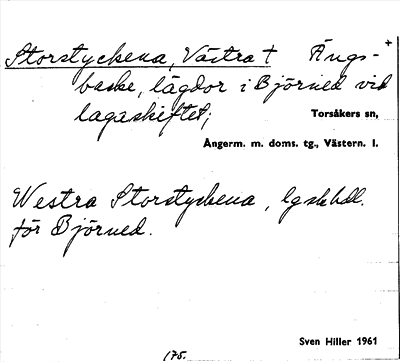 Storstyckena, Västra † Ängs- +
backe, lägdor i Björned vid
lagaskiftet;
Torsåkers sn,
Ångerm. m. doms. tg., Västern. l.
Westra Storstyckena, lgskhdl.
för Björned.
Sven Hiller 1961
175.